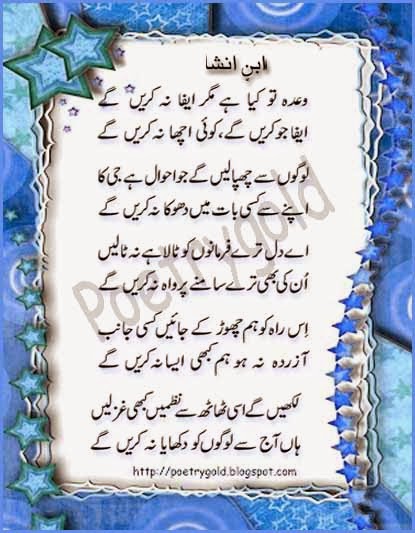 ابنِ انشا
وعدہ تو کیا ہے مگر ایفا نہ کریں گے
ایفا جو کریں گے، کوئی اچھا نہ کریں گے
لوگوں سے چھپا لیں گے جو احوال ہے جی کا
اپنے سے کسی بات میں دھوکا نہ کریں گے
اے دل ترے فرمانوں کو ٹالا ہے نہ ٹالیں
اُن کی بھی ترے سامنے پرواہ نہ کریں گے
اِس راہ کو ہم چھوڑ کے جائیں کسی جانب
آزردہ نہ ہو ہم کبھی ایسا نہ کریں گے
لکھیں گے اسی ٹھاٹھ سے نظمیں کبھی غزلیں
ہاں آج سے لوگوں کو دکھایا نہ کریں گے
http://poetrygold.blogspot.com
Poetrygold